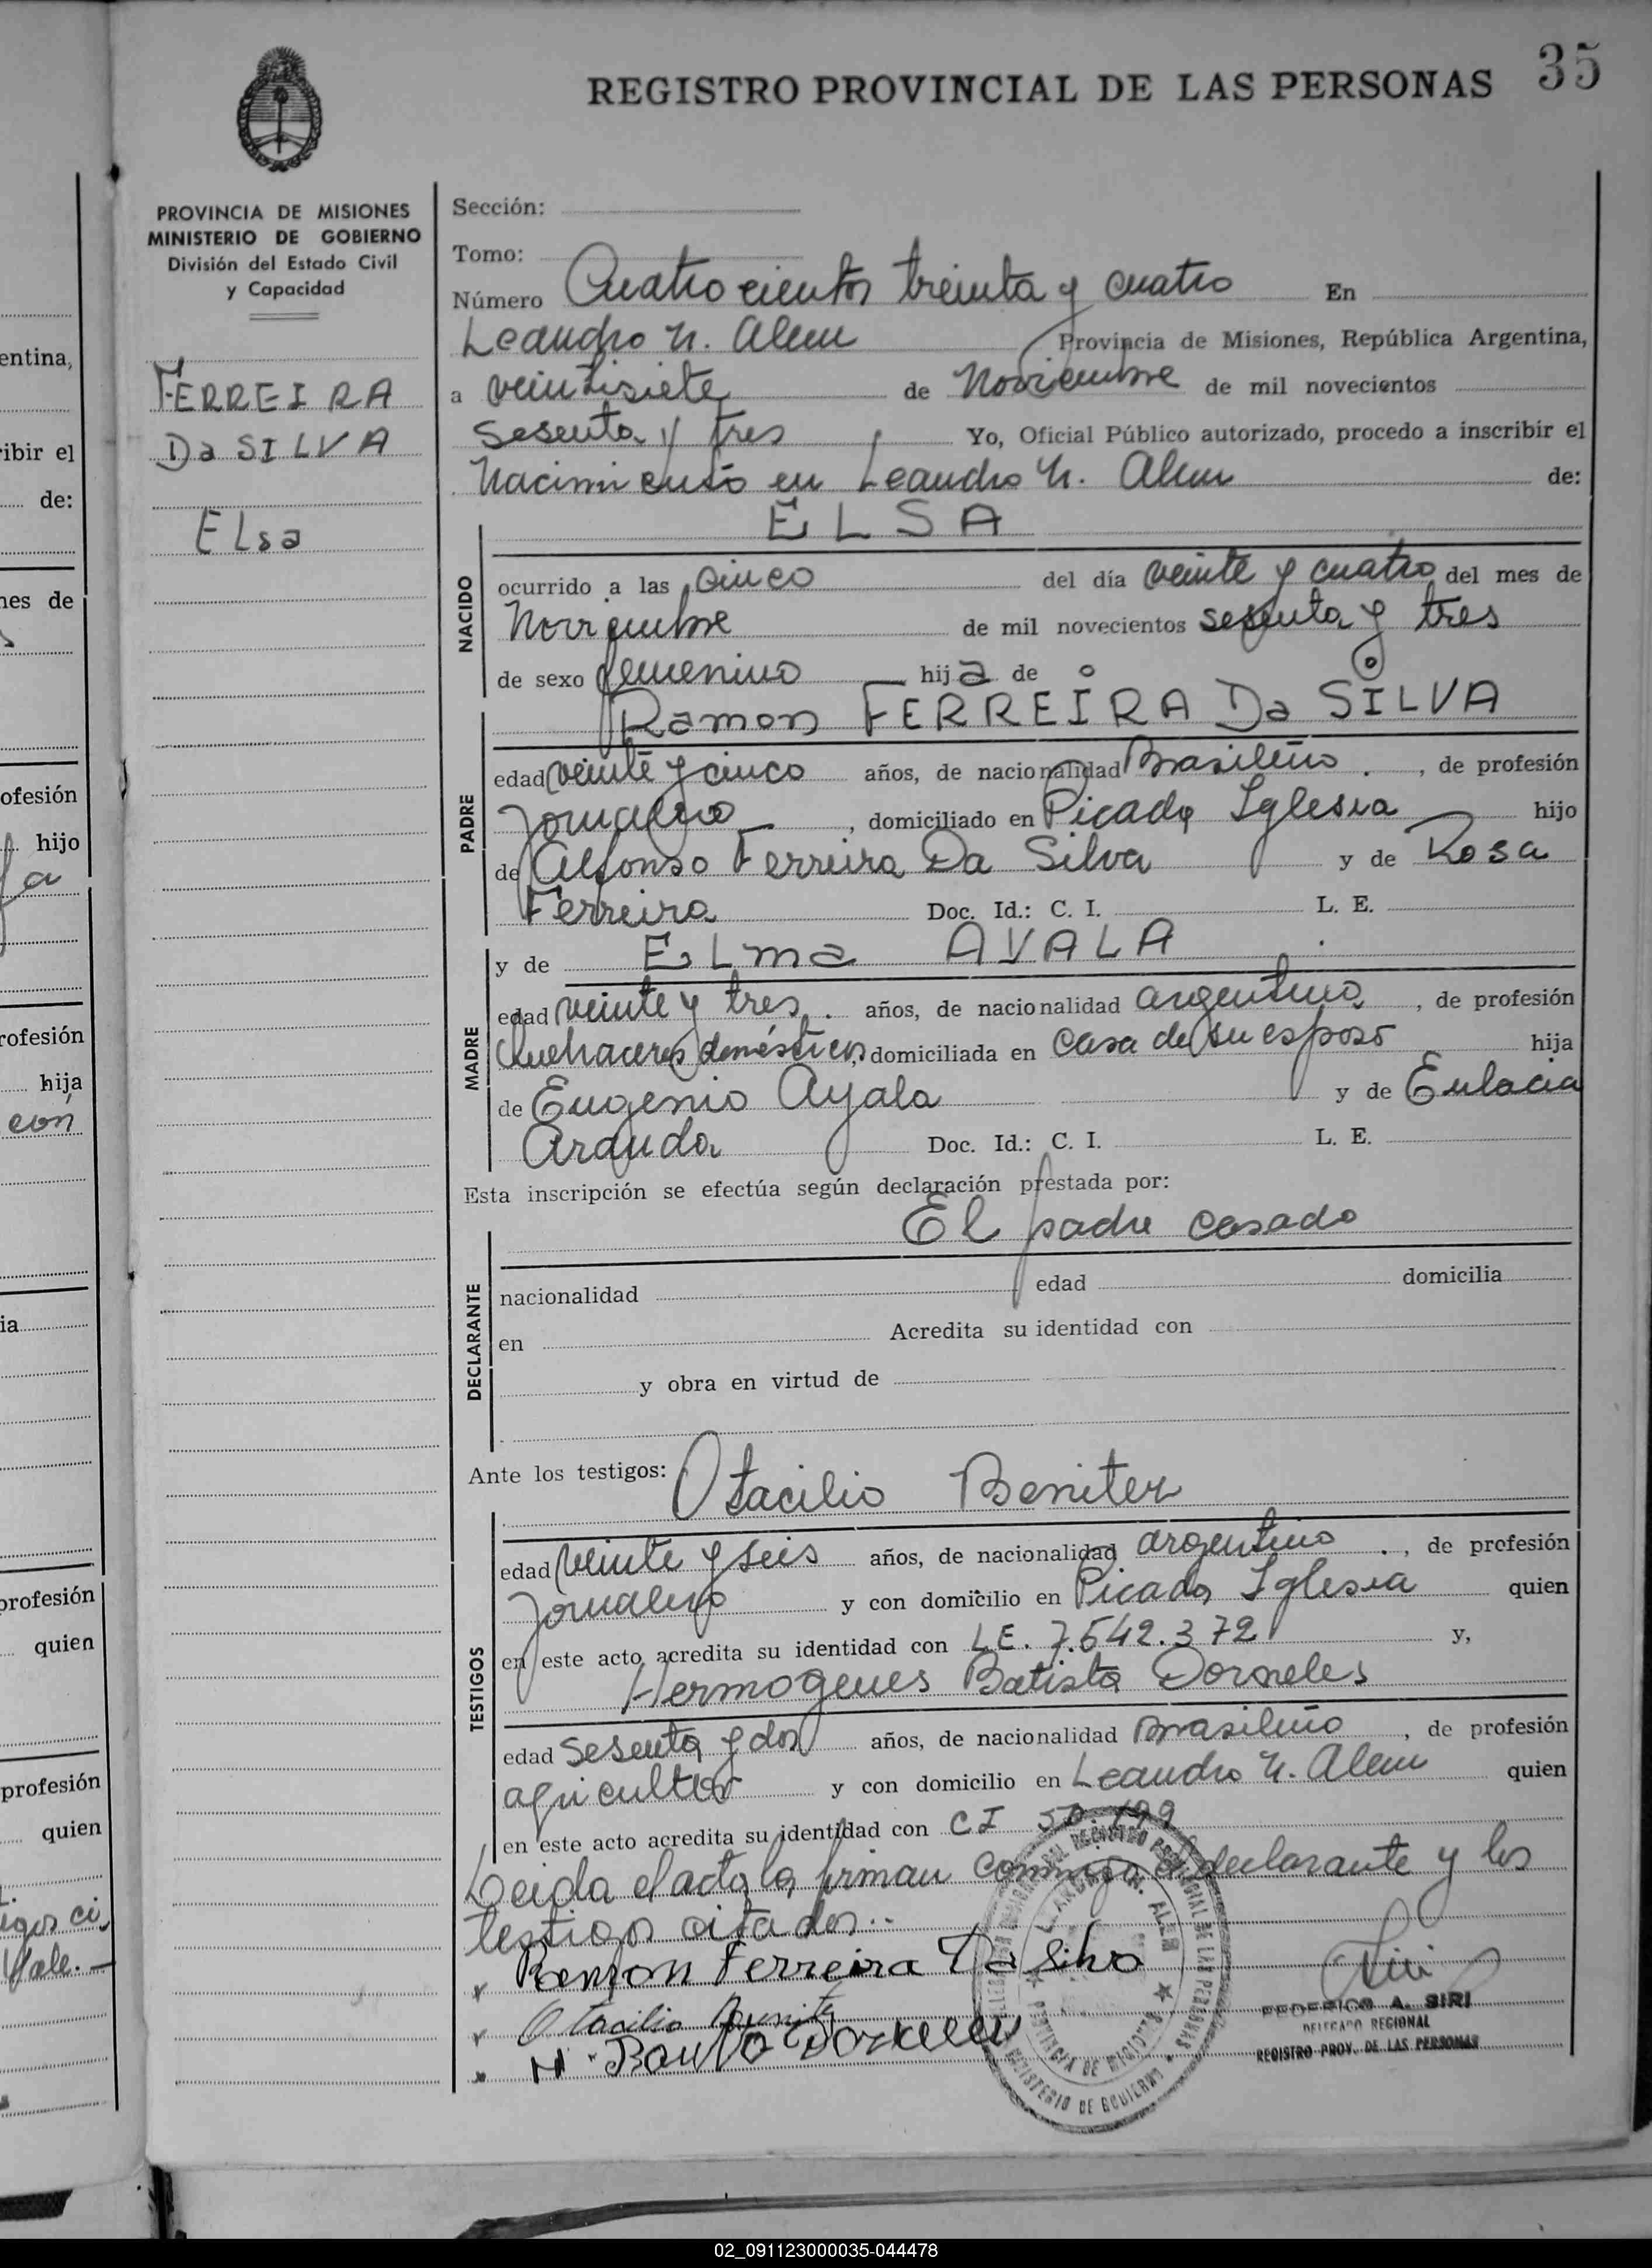 REGISTRO PROVINCIAL DE LAS PERSONAS 35
PROVINCIA DE MISIONES
MINISTERIO DE GOBIERNO
División del Estado Civil
y Capacidad
FERREIRA
Da SILVA
ELsa
Sección:
Tomo:
Número Cuatrocientos treinta y cuatro En
Leandro N. Alem Provincia de Misiones, República Argentina,
a veintisiete de Noviembre de mil novecientos
sesenta y tres Yo, Oficial Público autorizado, procedo a inscribir el
Nacimiento en Leandro N. Alem de:
ELSA
NACIDO
ocurrido a las cinco del día veinte y cuatro del mes de
Noviembre de mil novecientos sesenta y tres
de sexo femenino hija de
Ramon FERREIRA Da SILVA
PADRE
edad veinte y cinco años, de nacionalidad Brasileño, de profesión
Jornalero, domiciliado en Picada Iglesia hijo
de Alfonso Ferreira Da Silva y de Rosa
Ferreira Doc. Id.: C. I. L. E.
y de ELma AYALA
MADRE
edad veinte y tres años, de nacionalidad argentina, de profesión
Quehaceres domésticos domiciliada en casa de su esposo hija
de Eugenio Ayala y de Eulacia
Aranda Doc. Id.: C. I. L. E.
Esta inscripción se efectúa según declaración prestada por:
El padre casado
DECLARANTE
nacionalidad edad domicilia
en Acredita su identidad con
y obra en virtud de
Ante los testigos: Otacilio Benitez
TESTIGOS
edad veinte y seis años, de nacionalidad argentino, de profesión
Jornalero y con domicilio en Picada Iglesia quien
en este acto acredita su identidad con L.E. 7.542.372 y,
Hermogenes Batista Dorneles
edad sesenta y dos años, de nacionalidad Brasileño, de profesión
agricultor y con domicilio en Leandro N. Alem quien
en este acto acredita su identidad con CI
Leida el acta la firman conmigo el declarante y los
testigos citados..
Ramon Ferreira Da Silva
Otacilio Benitez
H. Bautista Dorneles
FEDERICO A. SIRI
DELEGADO REGIONAL
REGISTRO PROV. DE LAS PERSONAS
PROVINCIA DE MISIONES
MINISTERIO DE GOBIERNO
entina,
ribir el
de:
nes de
ofesión
hijo
a
rofesión
hija
con
ia
profesión
quien
profesión
quien
Vale.
02_091123000035-044478